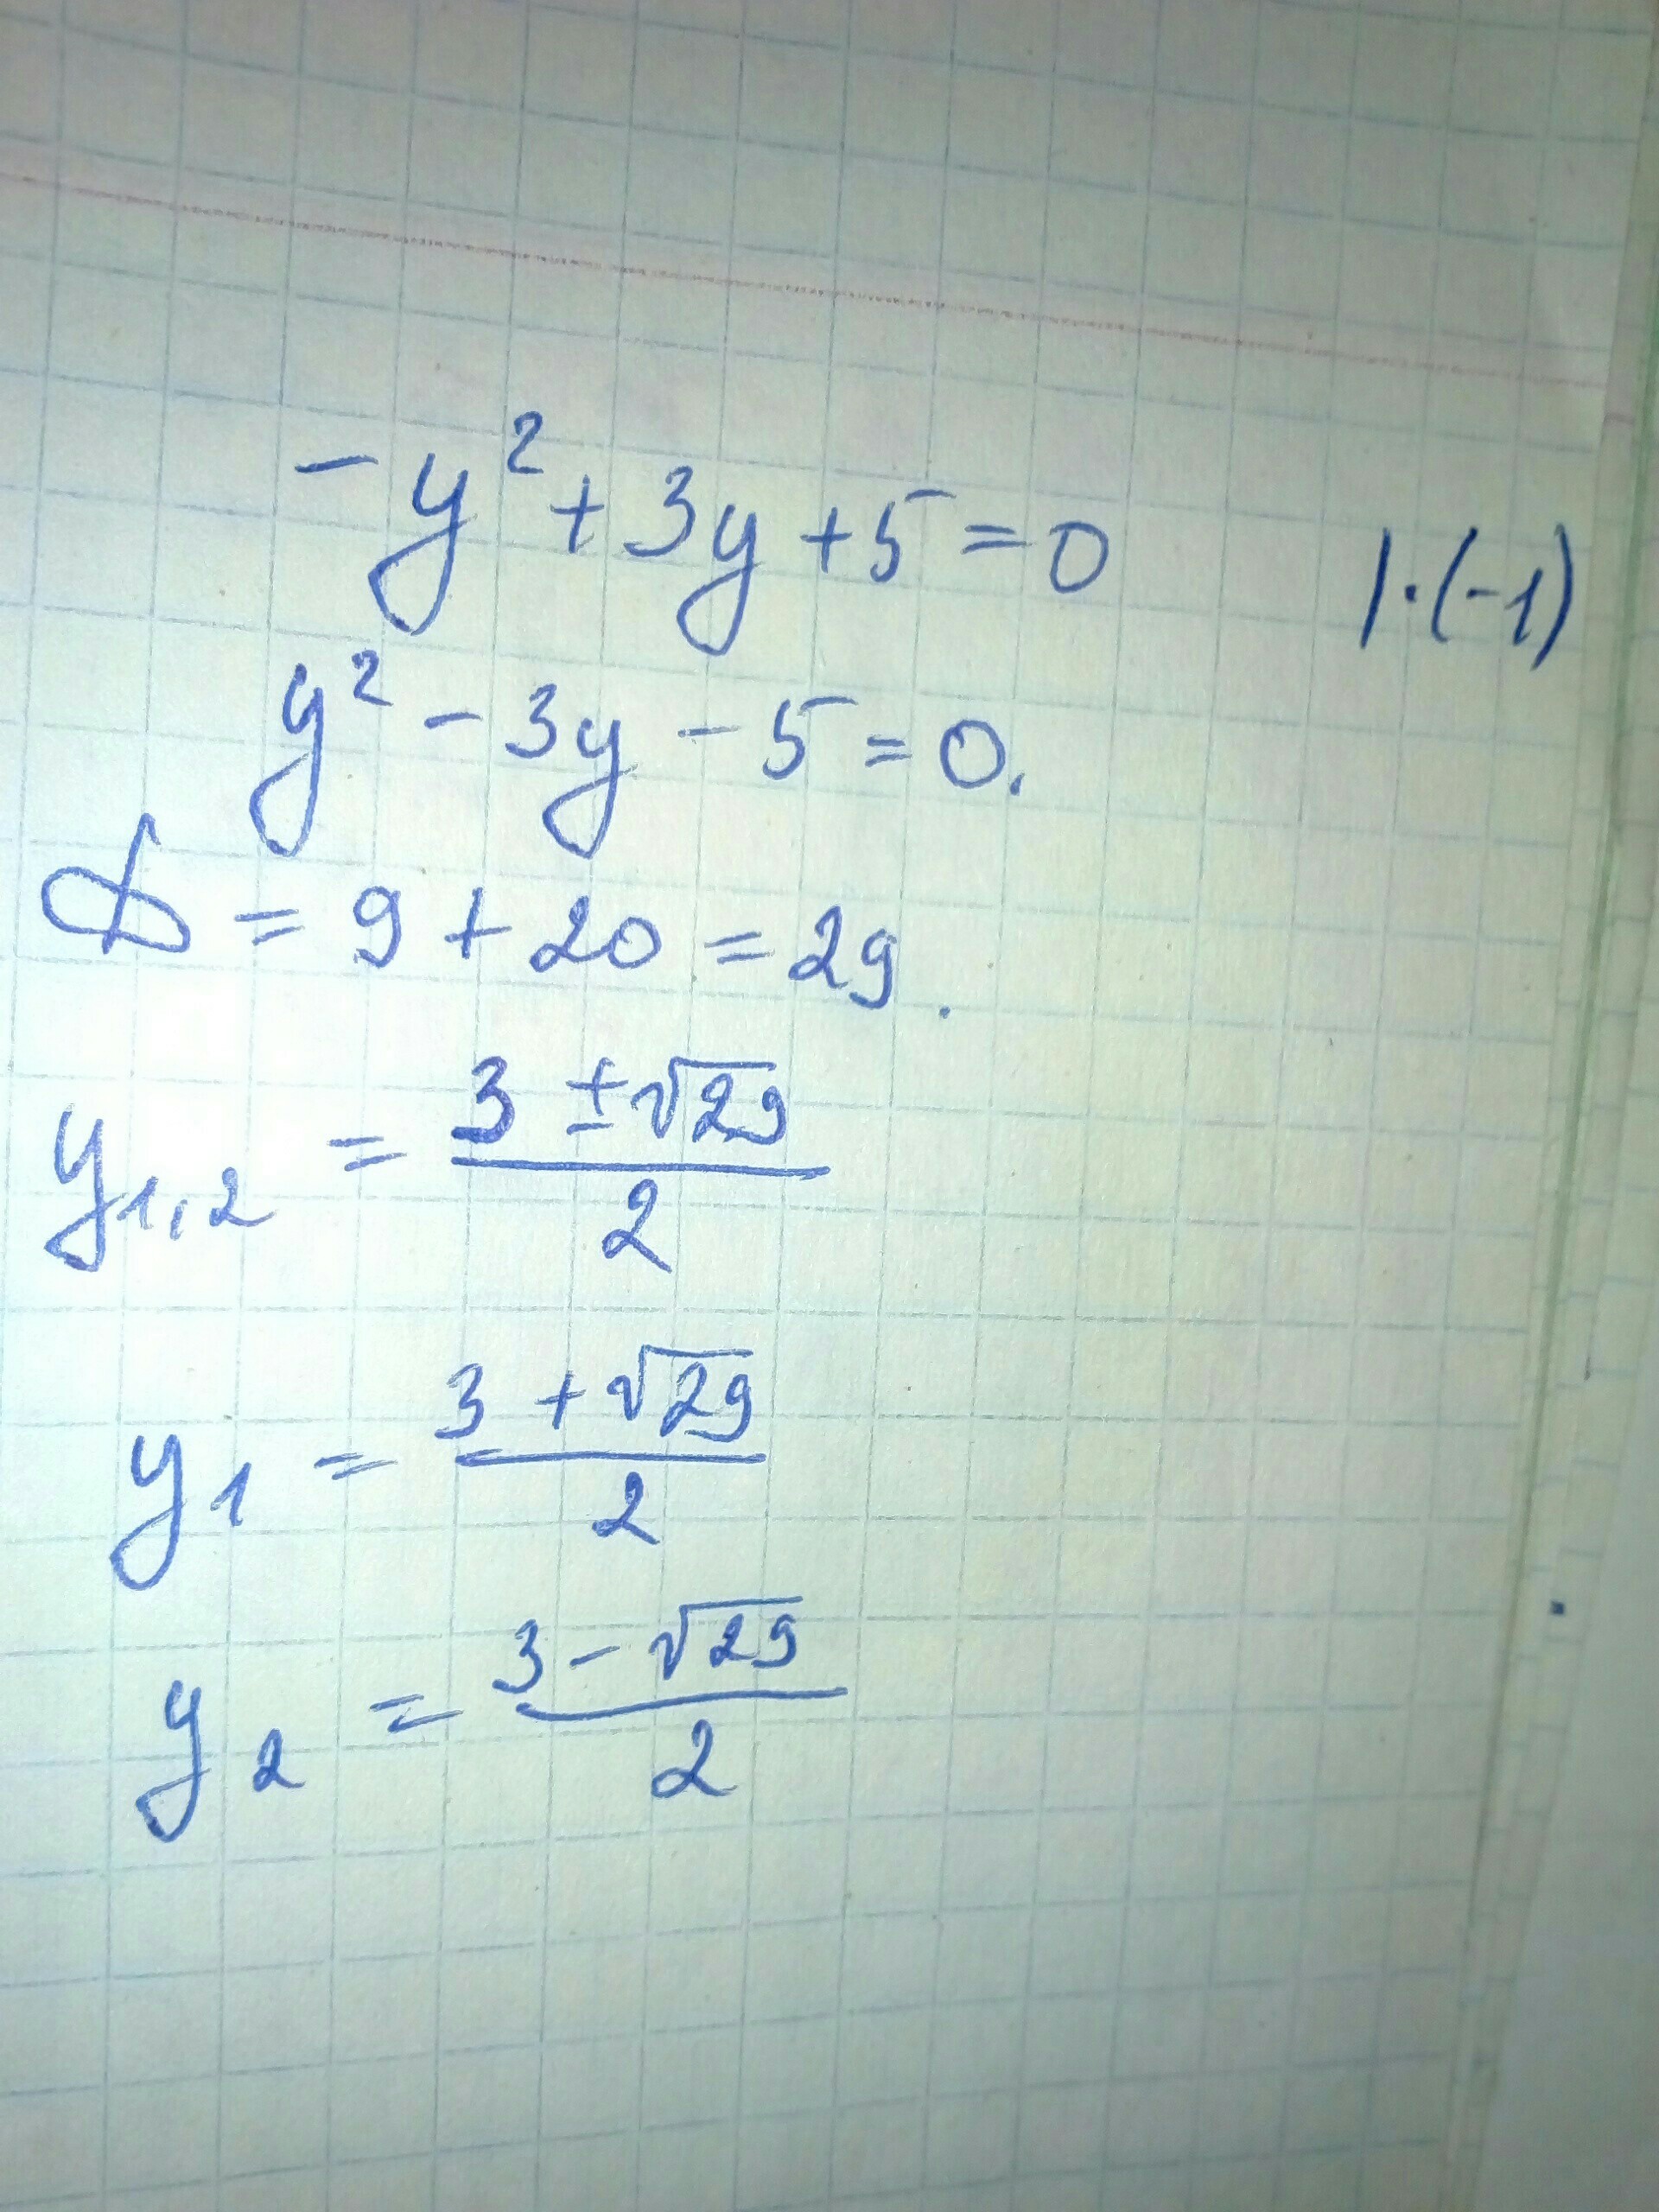 -y² + 3y + 5 = 0 | · (-1)
y² - 3y - 5 = 0.
D = 9 + 20 = 29.
y₁,₂ = (3 ± √29)/2
y₁ = (3 + √29)/2
y₂ = (3 - √29)/2